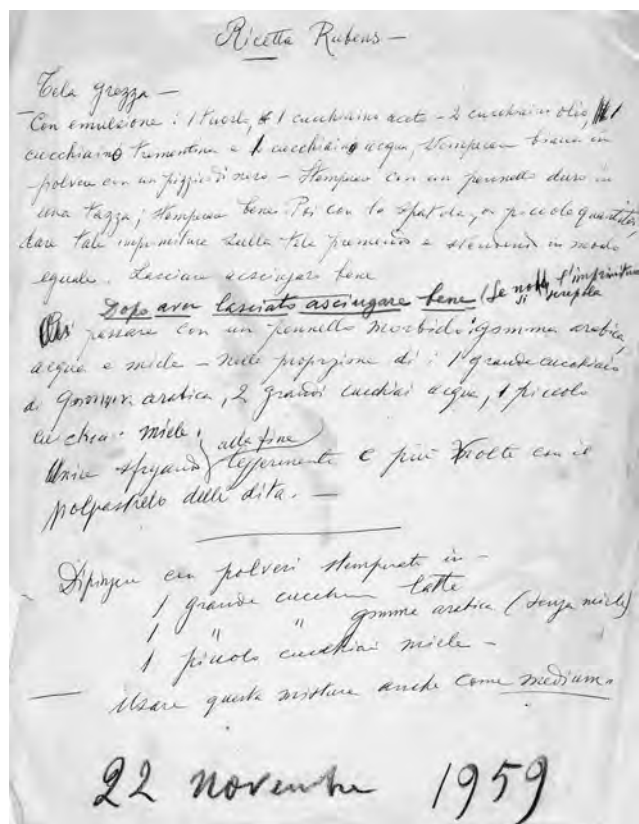 Ricetta Rubens —
Tela grezza —
— Con emulsione : 1 tuorlo, 1 cucchiaino aceto - 2 cucchiaini olio, 1
cucchiaino trementina e 1 cucchiaino acqua, stemperare bianco in
polvere con un pizzico di nero — Stemperare con un pennello duro in
una tazza; stemperare bene. Poi con la spatola, a piccole quantità,
dare tale imprimitura sulla tela premendo e stendendo in modo
eguale. Lasciare asciugare bene
Dopo aver lasciato asciugare bene (Se no si l'imprimitura
passare con un pennello morbido: gomma arabica,
acqua e miele — nelle proporzione di : 1 grande cucchiaio
di gomma arabica, 2 grandi cucchiai acqua, 1 piccolo
miele.
alla fine
Unire sfregando leggermente e più volte con il
polpastrello delle dita. —
Dipingere con polveri stemperate in —
1 grande cucchiaio latte
1 " " gomma arabica (senza miele)
1 piccolo cucchiaio miele —
Usare questa mistura anche come medium.
22 novembre 1959